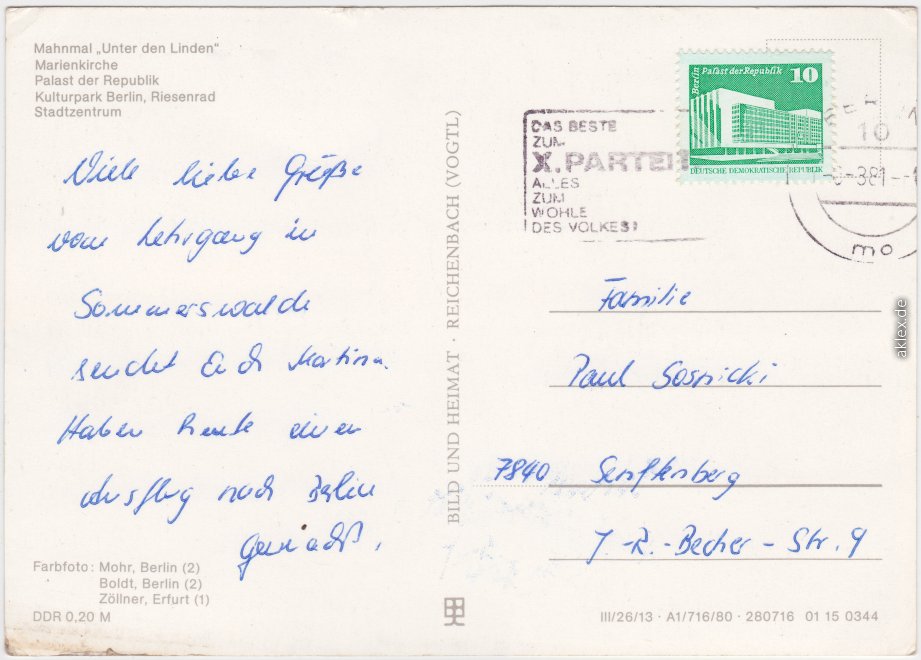 Mahnmal „Unter den Linden"
Marienkirche
Palast der Republik
Kulturpark Berlin, Riesenrad
Stadtzentrum
Viele liebe Grüße
vom Lehrgang in
Sommerswalde
sendet Euch Martina.
Haben heute einen
Ausflug nach Berlin
gemacht.
Farbfoto: Mohr, Berlin (2)
Boldt, Berlin (2)
Zöllner, Erfurt (1)
DDR 0,20 M
BILD UND HEIMAT · REICHENBACH (VOGTL)
DAS BESTE
ZUM
X. PARTEI
ALLES
ZUM
WOHLE
DES VOLKES!
Berlin Palast der Republik 10
DEUTSCHE DEMOKRATISCHE REPUBLIK
10
mo
Familie
Paul Sosnicki
7840 Senftenberg
J.-R.-Becher-Str. 9
III/26/13 · A1/716/80 · 280716 01 15 0344
aklex.de